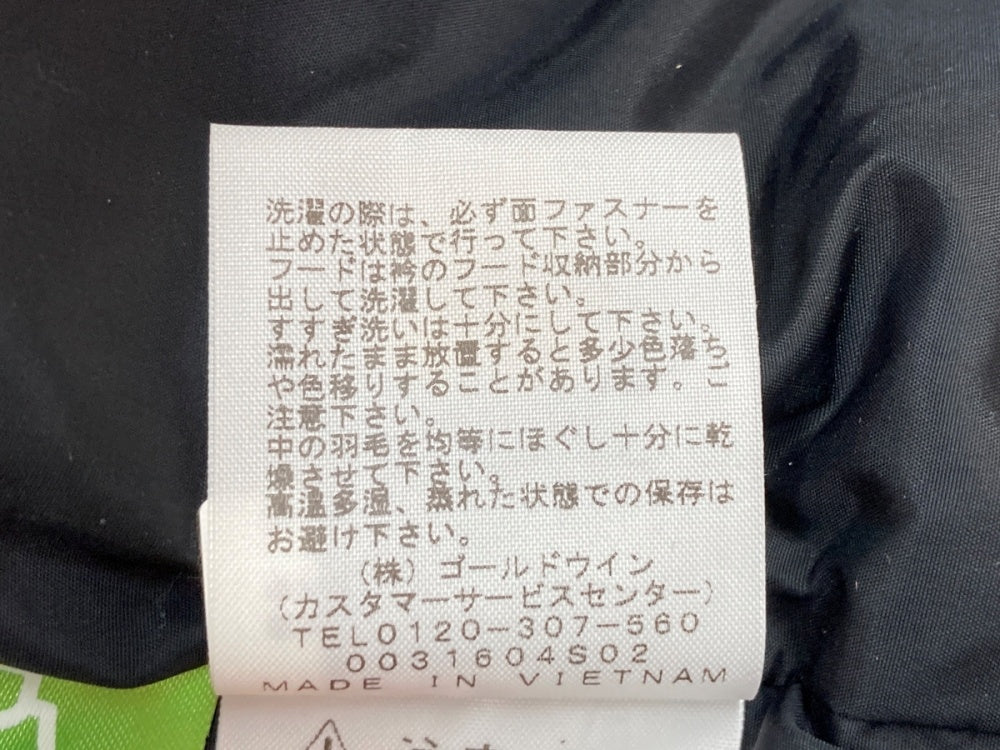 洗濯の際は、必ず面ファスナーを
止めた状態で行って下さい。
フードは衿のフード収納部分から
出して洗濯して下さい。
すすぎ洗いは十分にして下さい。
濡れたまま放置すると多少色落ち
や色移りすることがあります。ご
注意下さい。
中の羽毛を均等にほぐし十分に乾
燥させて下さい。
高温多湿、蒸れた状態での保存は
お避け下さい。
(株)ゴールドウイン
(カスタマーサービスセンター)
TEL0120-307-560
0031604S02
MADE IN VIETNAM